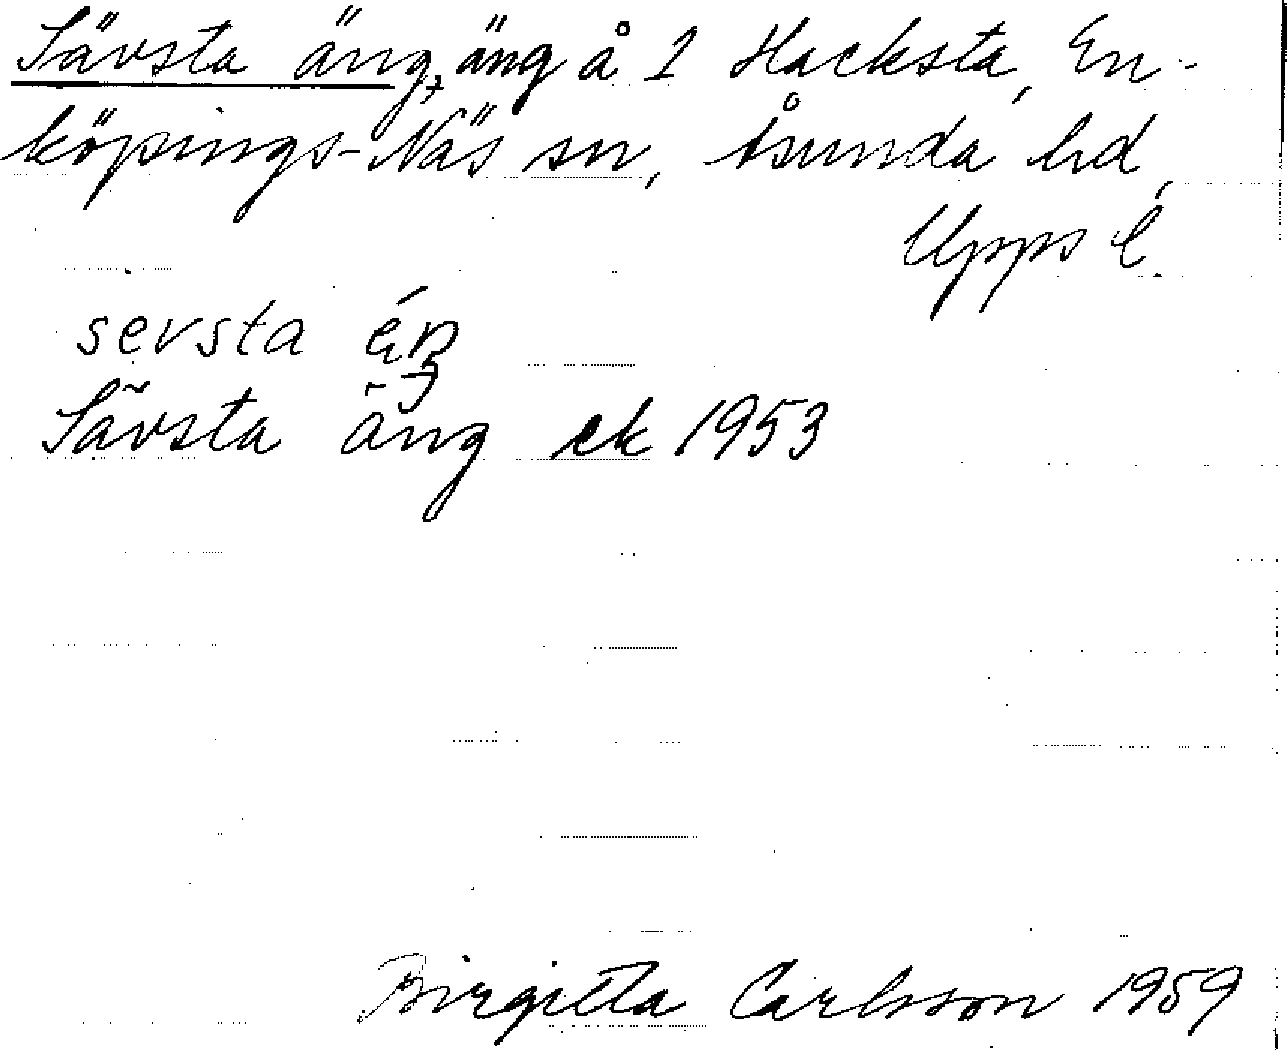 Sävsta äng, äng å 1 Hacksta, En-
köpings-Näs sn, Åsunda hd,
Upps l.
sevsta éŋ
Sävsta äng ek 1953
Birgitta Carlsson 1959